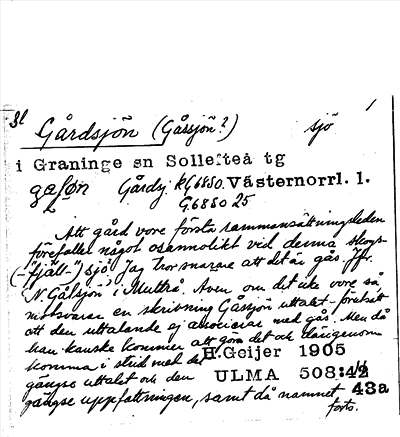 Sl Gårdsjön (Gåssjön?) sjö 1
i Graninge sn Sollefteå tg
Gårdsj. kG6850. Västernorrl. l.
G6850 25
Att gård vore första sammansättningsleden
förefaller något osannolikt vid denna skogs-
(-"fjäll-") sjö. Jag tror snarare att det är gås. Jfr.
"N. Gålsjön" i Multrå. Även om det icke vore så,
motsvarar en skrivning Gåssjön uttalet - förutsatt
att den uttalande ej associerar med gås. Men då
han kanske kommer att göra det och därigenom
komma i strid med det
H.Geijer 1905
gängse uttalet och den
ULMA 508:42
gängse uppfattningen, samt då namnet 43a
forts.